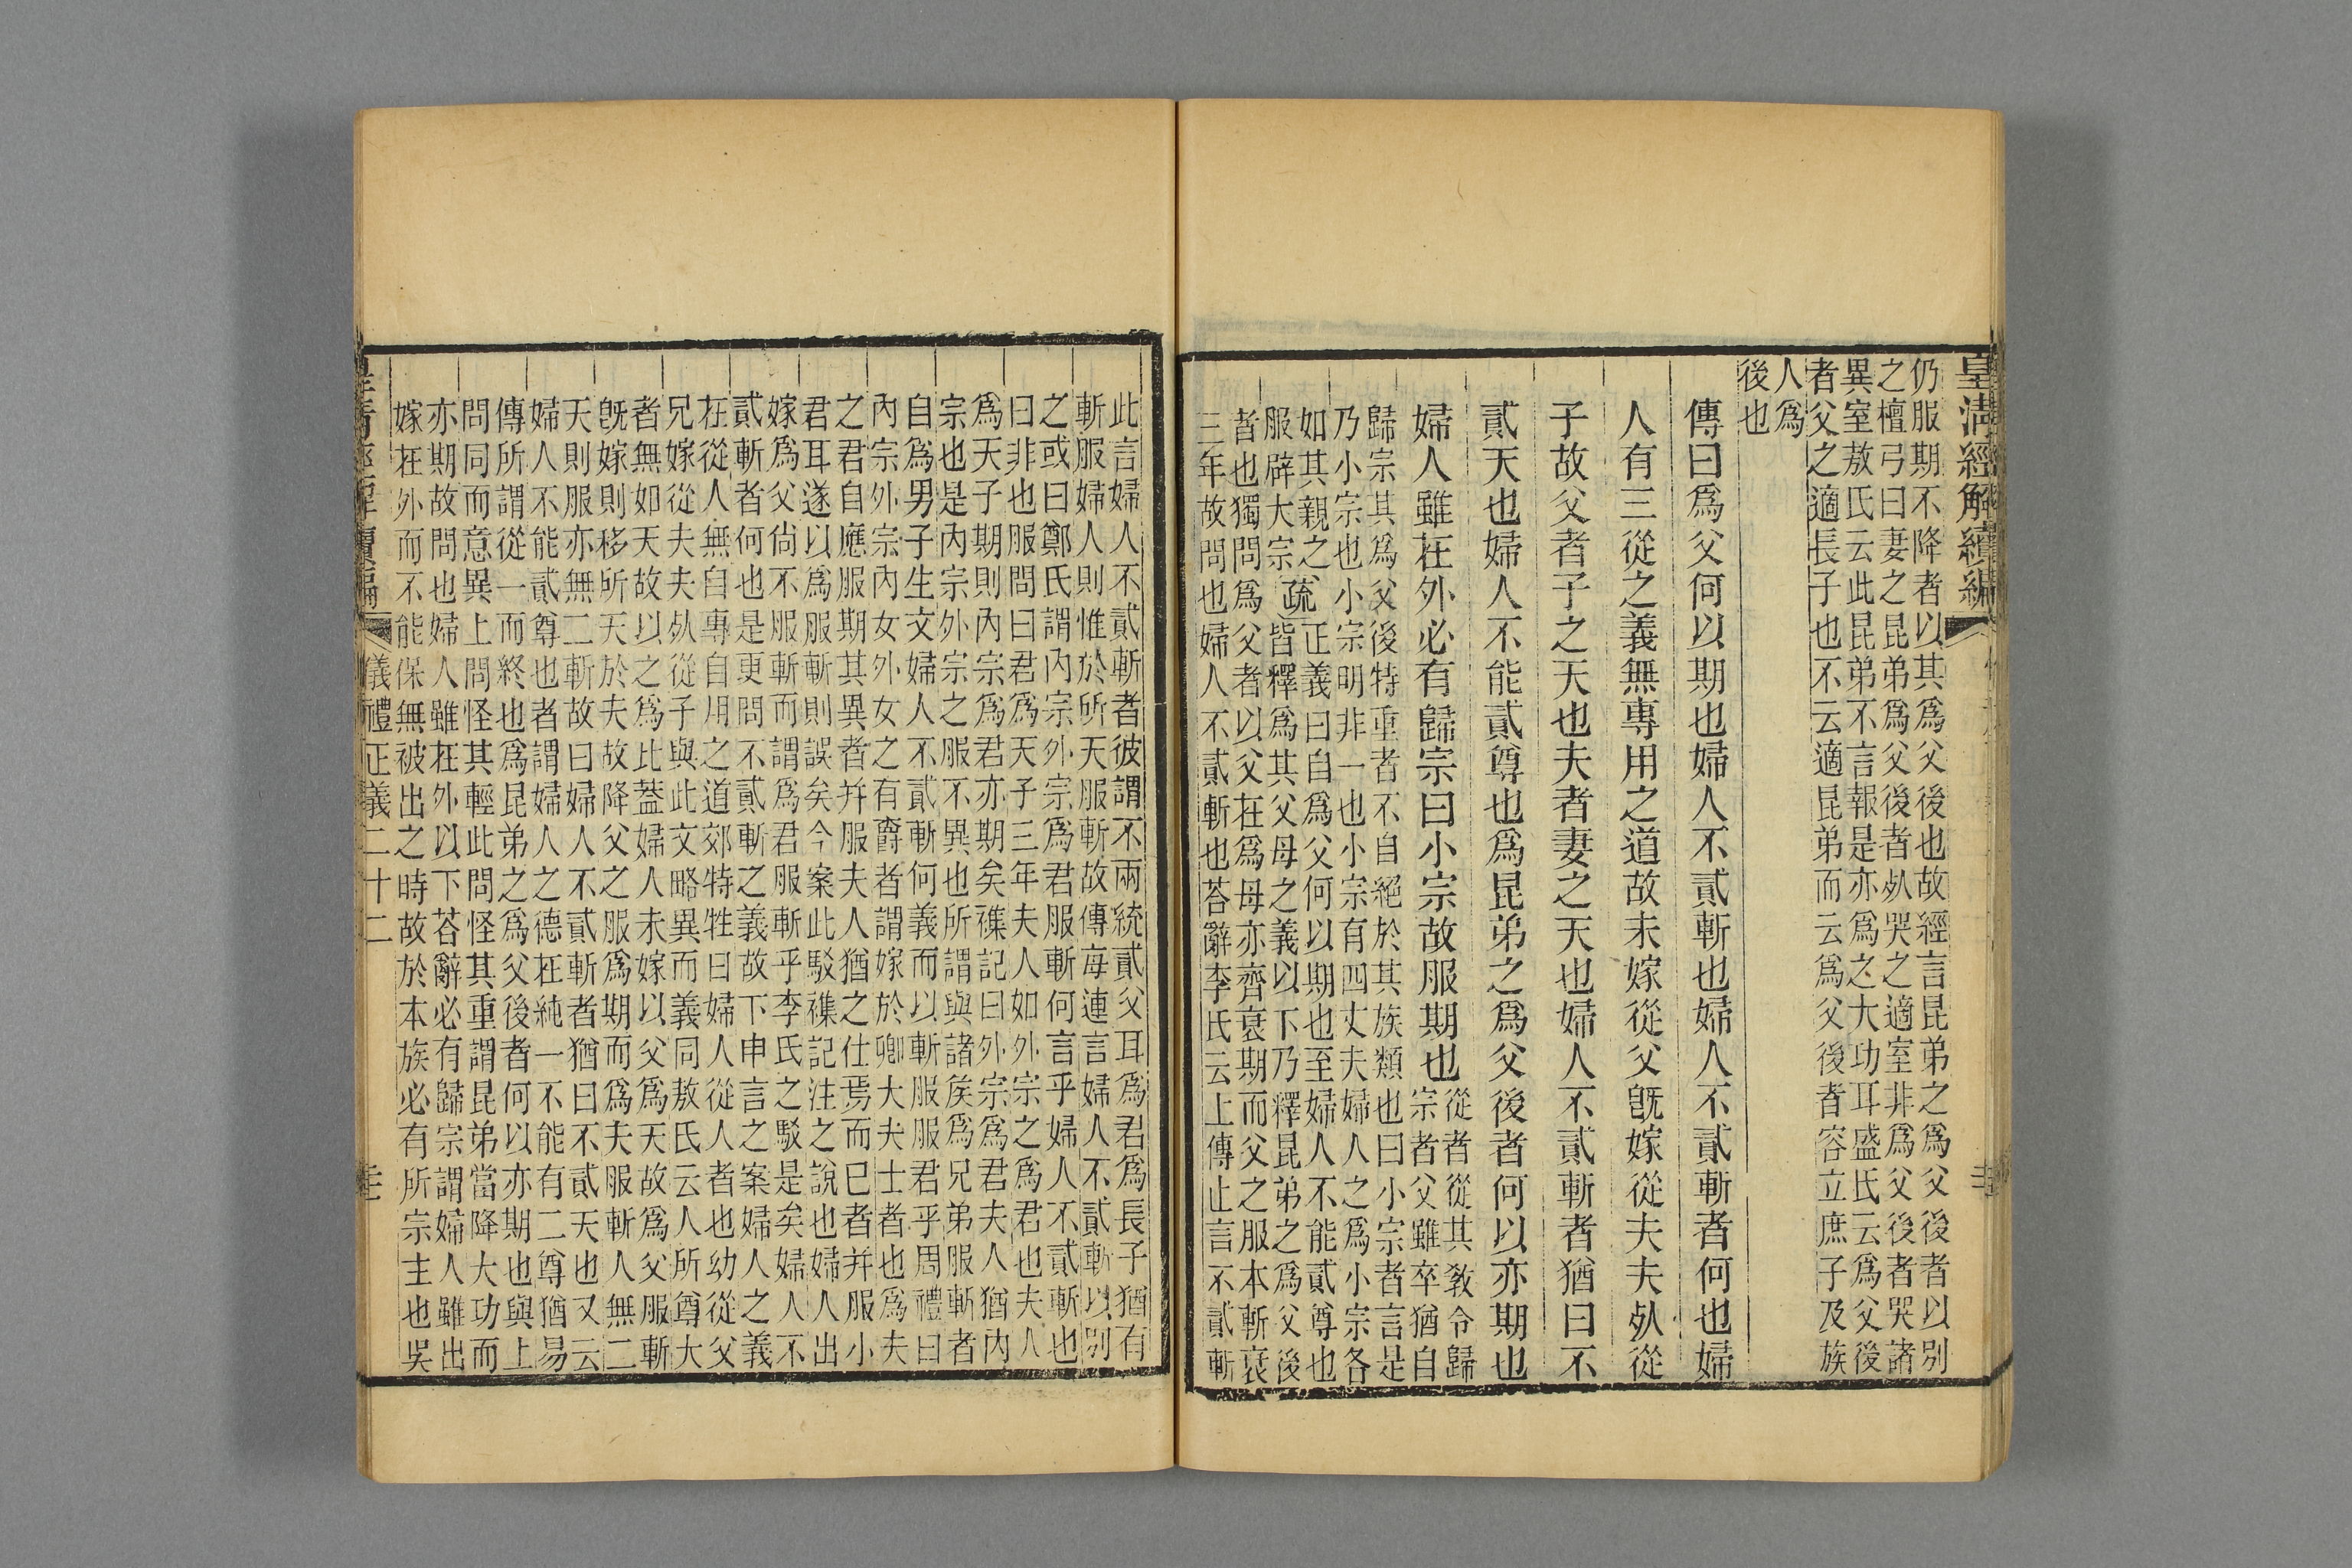 皇清經解續編
仍服期不降者以其爲父後也故經言昆弟之爲父後者以別
之檀弓曰妻之昆弟爲父後者死哭之適室非爲父後者哭諸
異室敖氏云此昆弟不言報是亦爲之大功耳盛氏云爲父後
者父之適長子也不云適昆弟而云爲父後者容立庶子及族
人爲
後也
傳曰爲父何以期也婦人不貳斬也婦人不貳斬者何也婦
人有三從之義無專用之道故未嫁從父旣嫁從夫夫死從
子故父者子之天也夫者妻之天也婦人不貳斬者猶曰不
貳天也婦人不能貳尊也爲昆弟之爲父後者何以亦期也
婦人雖在外必有歸宗曰小宗故服期也
從者從其敎令歸
宗者父雖卒猶自
歸宗其爲父後特重者不自絕於其族類也曰小宗者言是
乃小宗也小宗明非一也小宗有四丈夫婦人之爲小宗各
如其親之 疏 正義曰自爲父何以期也至婦人不能貳尊也
服辟大宗 皆釋爲其父母之義以下乃釋昆弟之爲父後
者也獨問爲父者以父在爲母亦齊衰期而父之服本斬衰
三年故問也婦人不貳斬也荅辭李氏云上傳止言不貳斬
此言婦人不貳斬者彼謂不兩統貳父耳爲君爲長子猶有
斬服婦人則惟於所天服斬故傳每連言婦人不貳斬以別
之或曰鄭氏謂內宗外宗爲君服斬何言乎婦人不貳斬也
曰非也服問曰君爲天子三年夫人如外宗之爲君也夫人
爲天子期則內宗爲君亦期矣襍記曰外宗爲君夫人猶內
宗也是內宗外宗之服不異也所謂與諸矦爲兄弟服斬者
自爲男子生文婦人不貳斬何義而以斬服服君乎周禮曰
內宗外宗內女外女之有爵者謂嫁於卿大夫士者也爲夫
之君自應服期其異者幷服夫人猶之仕焉而已者幷服小
君耳遂以爲服斬則誤矣今案此駁襍記注之說也婦人出
嫁爲父尙不服斬而謂爲君服斬乎李氏之駁是矣婦人不
貳斬者何也是更問不貳斬之義故下申言之案婦人之義
在從人無自專自用之道郊特牲曰婦人從人者也幼從父
兄嫁從夫夫死從子與此文略異而義同敖氏云人所尊大
者無如天故以之爲比葢婦人未嫁以父爲天故爲父服斬
旣嫁則移所天於夫故降父之服爲期而爲夫服斬人無二
天則服亦無二斬故曰婦人不貳斬者猶曰不貳天也又云
婦人不能貳尊也者謂婦人之德在純一不能有二尊猶易
傳所謂從一而終也爲昆弟之爲父後者何以亦期也與上
問同而意異上問怪其輕此問怪其重謂昆弟當降大功而
亦期故問也婦人雖在外以下荅辭必有歸宗謂婦人雖出
嫁在外而不能保無被出之時故於本族必有所宗主也吳
儀禮正義二十二